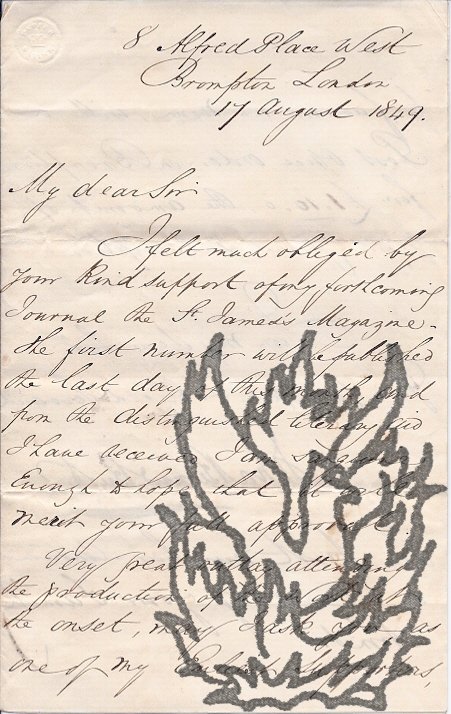 8 Alfred Place West
Brompton London
17 August 1849.
My dear Sir
I felt much obliged by
your kind support of my forthcoming
Journal the St. James's Magazine -
the first number will be published
the last day of this month and
from the distinguished literary aid
I have received I am
Enough to hope that it will
merit your full approval
Very great outlay attending
the production of at
the onset, may I ask you as
one of my supporters,